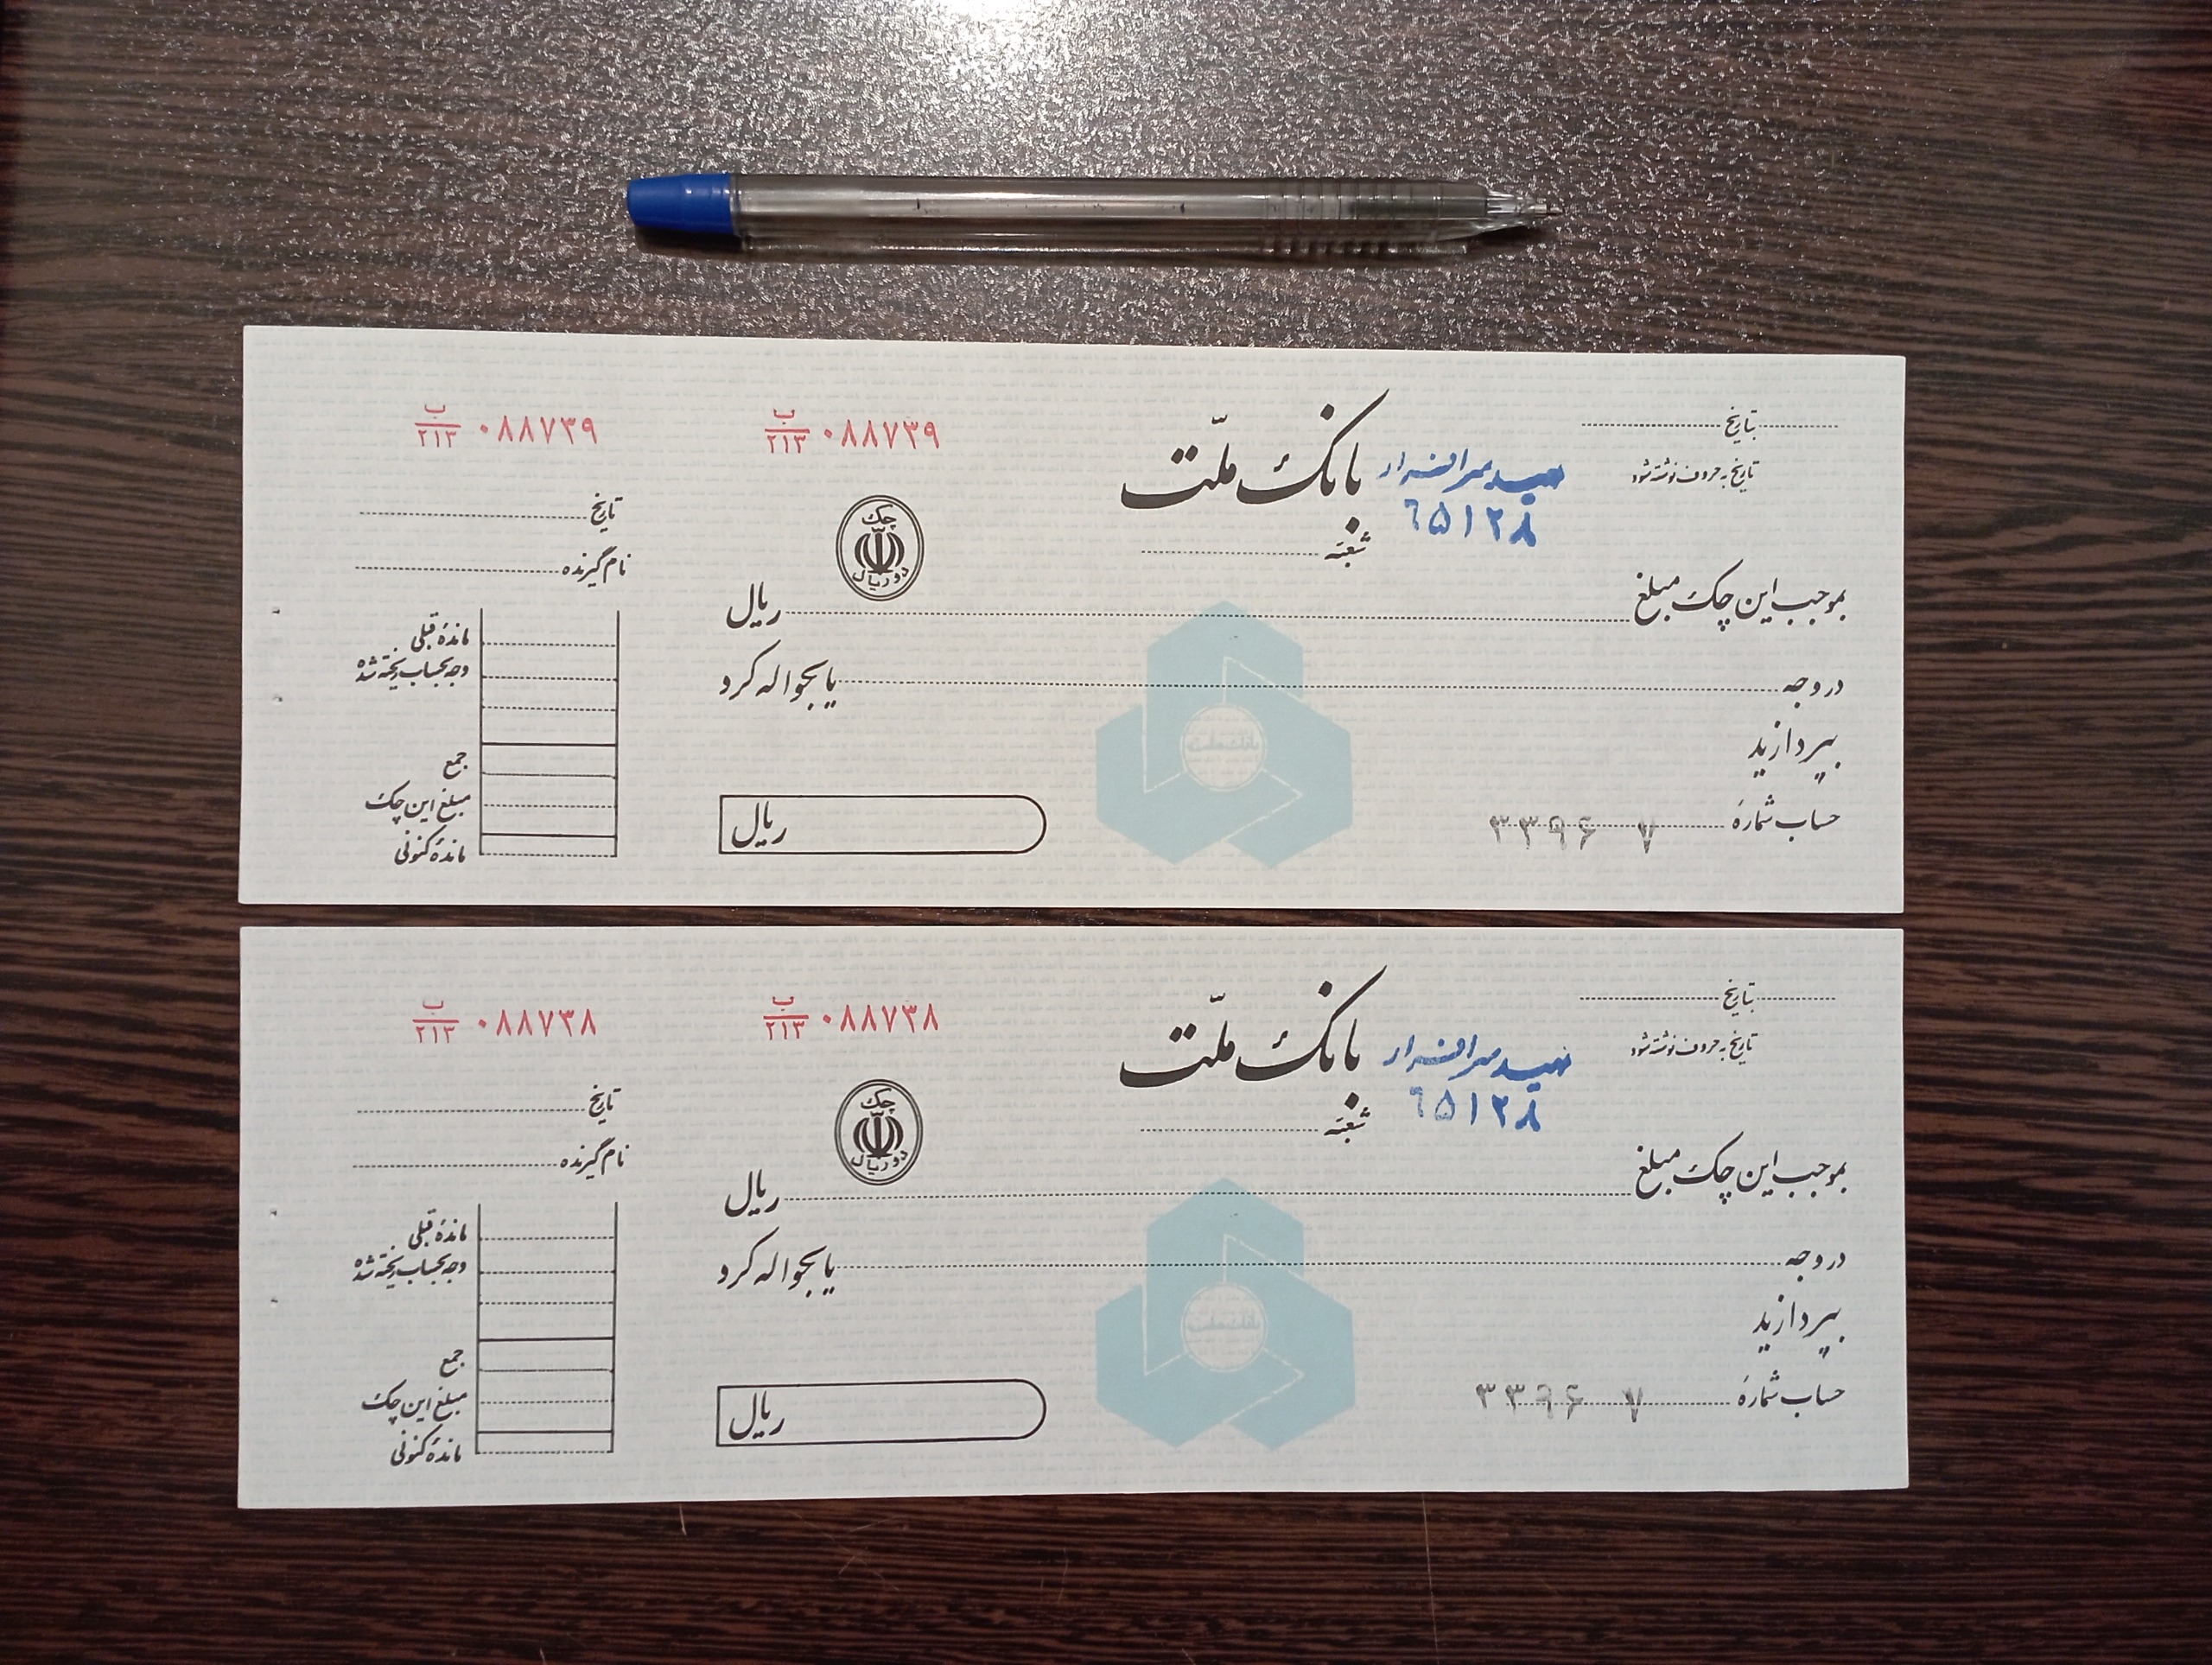 بتاریخ
تاریخ به حروف نوشته شود
بانک ملّت
سرافراز
٦۵۱۲۸
شعبه
ب
۲۱۳
۰۸۸۷۳۹
چک
دو ریال
بموجب این چک مبلغ ریال
در وجه یا بحواله کرد
بپردازید
حساب شماره ۷ ۳۳۹۶
ریال
بانک ملت
ب
۲۱۳
۰۸۸۷۳۹
تاریخ
نام گیرنده
مانده قبلی
وجه بحساب ریخته شده
جمع
مبلغ این چک
مانده کنونی
بتاریخ
تاریخ به حروف نوشته شود
بانک ملّت
سرافراز
٦۵۱۲۸
شعبه
ب
۲۱۳
۰۸۸۷۳۸
چک
دو ریال
بموجب این چک مبلغ ریال
در وجه یا بحواله کرد
بپردازید
حساب شماره ۷ ۳۳۹۶
ریال
بانک ملت
ب
۲۱۳
۰۸۸۷۳۸
تاریخ
نام گیرنده
مانده قبلی
وجه بحساب ریخته شده
جمع
مبلغ این چک
مانده کنونی